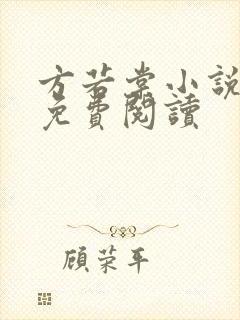 方若棠小說
免費閱讀
顾荣平